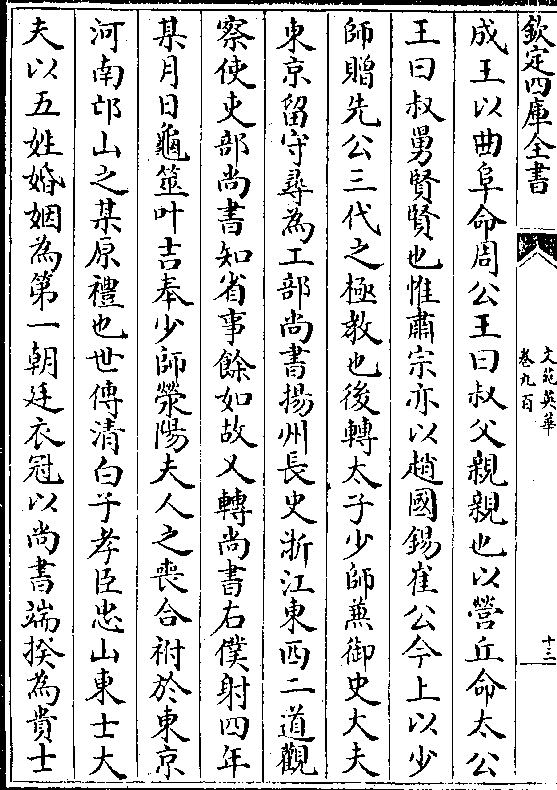 欽定四庫全書
文苑英華
卷九百
十三
成王以曲阜命周公王曰叔父親親也以營丘命太公
王曰叔舅賢賢也惟肅宗亦以趙國錫崔公今上以少
師贈先公三代之極教也後轉太子少師兼御史大夫
東京留守尋為工部尚書揚州長史浙江東西二道觀
察使吏部尚書知省事餘如故又轉尚書右僕射四年
某月日龜筮叶吉奉少師滎陽夫人之喪合祔於東京
河南邙山之某原禮也世傳清白子孝臣忠山東士大
夫以五姓婚姻為第一朝廷衣冠以尚書端揆為貴士